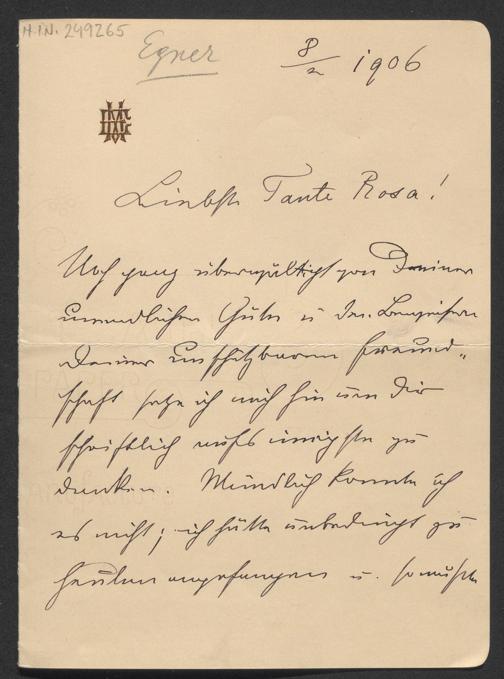 H.I.N. 249265
Egner
8/2 1906
Liebste Tante Rosa!
Noch ganz überwältigt von Deiner
unendlichen Güte u den Beweisen
Deiner unschätzbaren Freund-
schaft setze ich mich hin um Dir
schriftlich aufs innigste zu
danken. Mündlich konnte ich
es nicht; ich hätte unbedingt zu
heulen angefangen u. so mußte